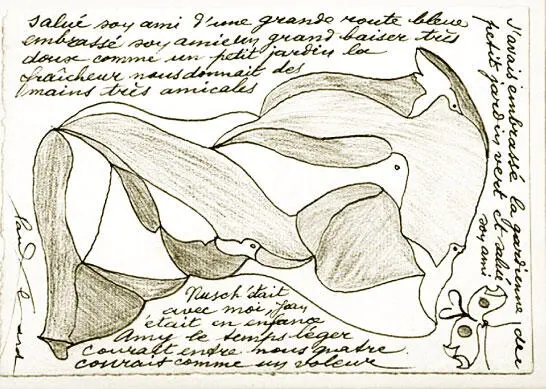 Salué soy ami d'une grande route bleue
embrassé soy amieux grand baiser très
doux comme un petit jardin la
fraîcheur nous donnait des
mains très amicales
J'avais embrassé la gardienne du
petit jardin vert et salué
soy ami
Nusch était
avec moi, Jay
était en enfance
Amy le temps léger
courait entre nous quatre
courait comme un voleur